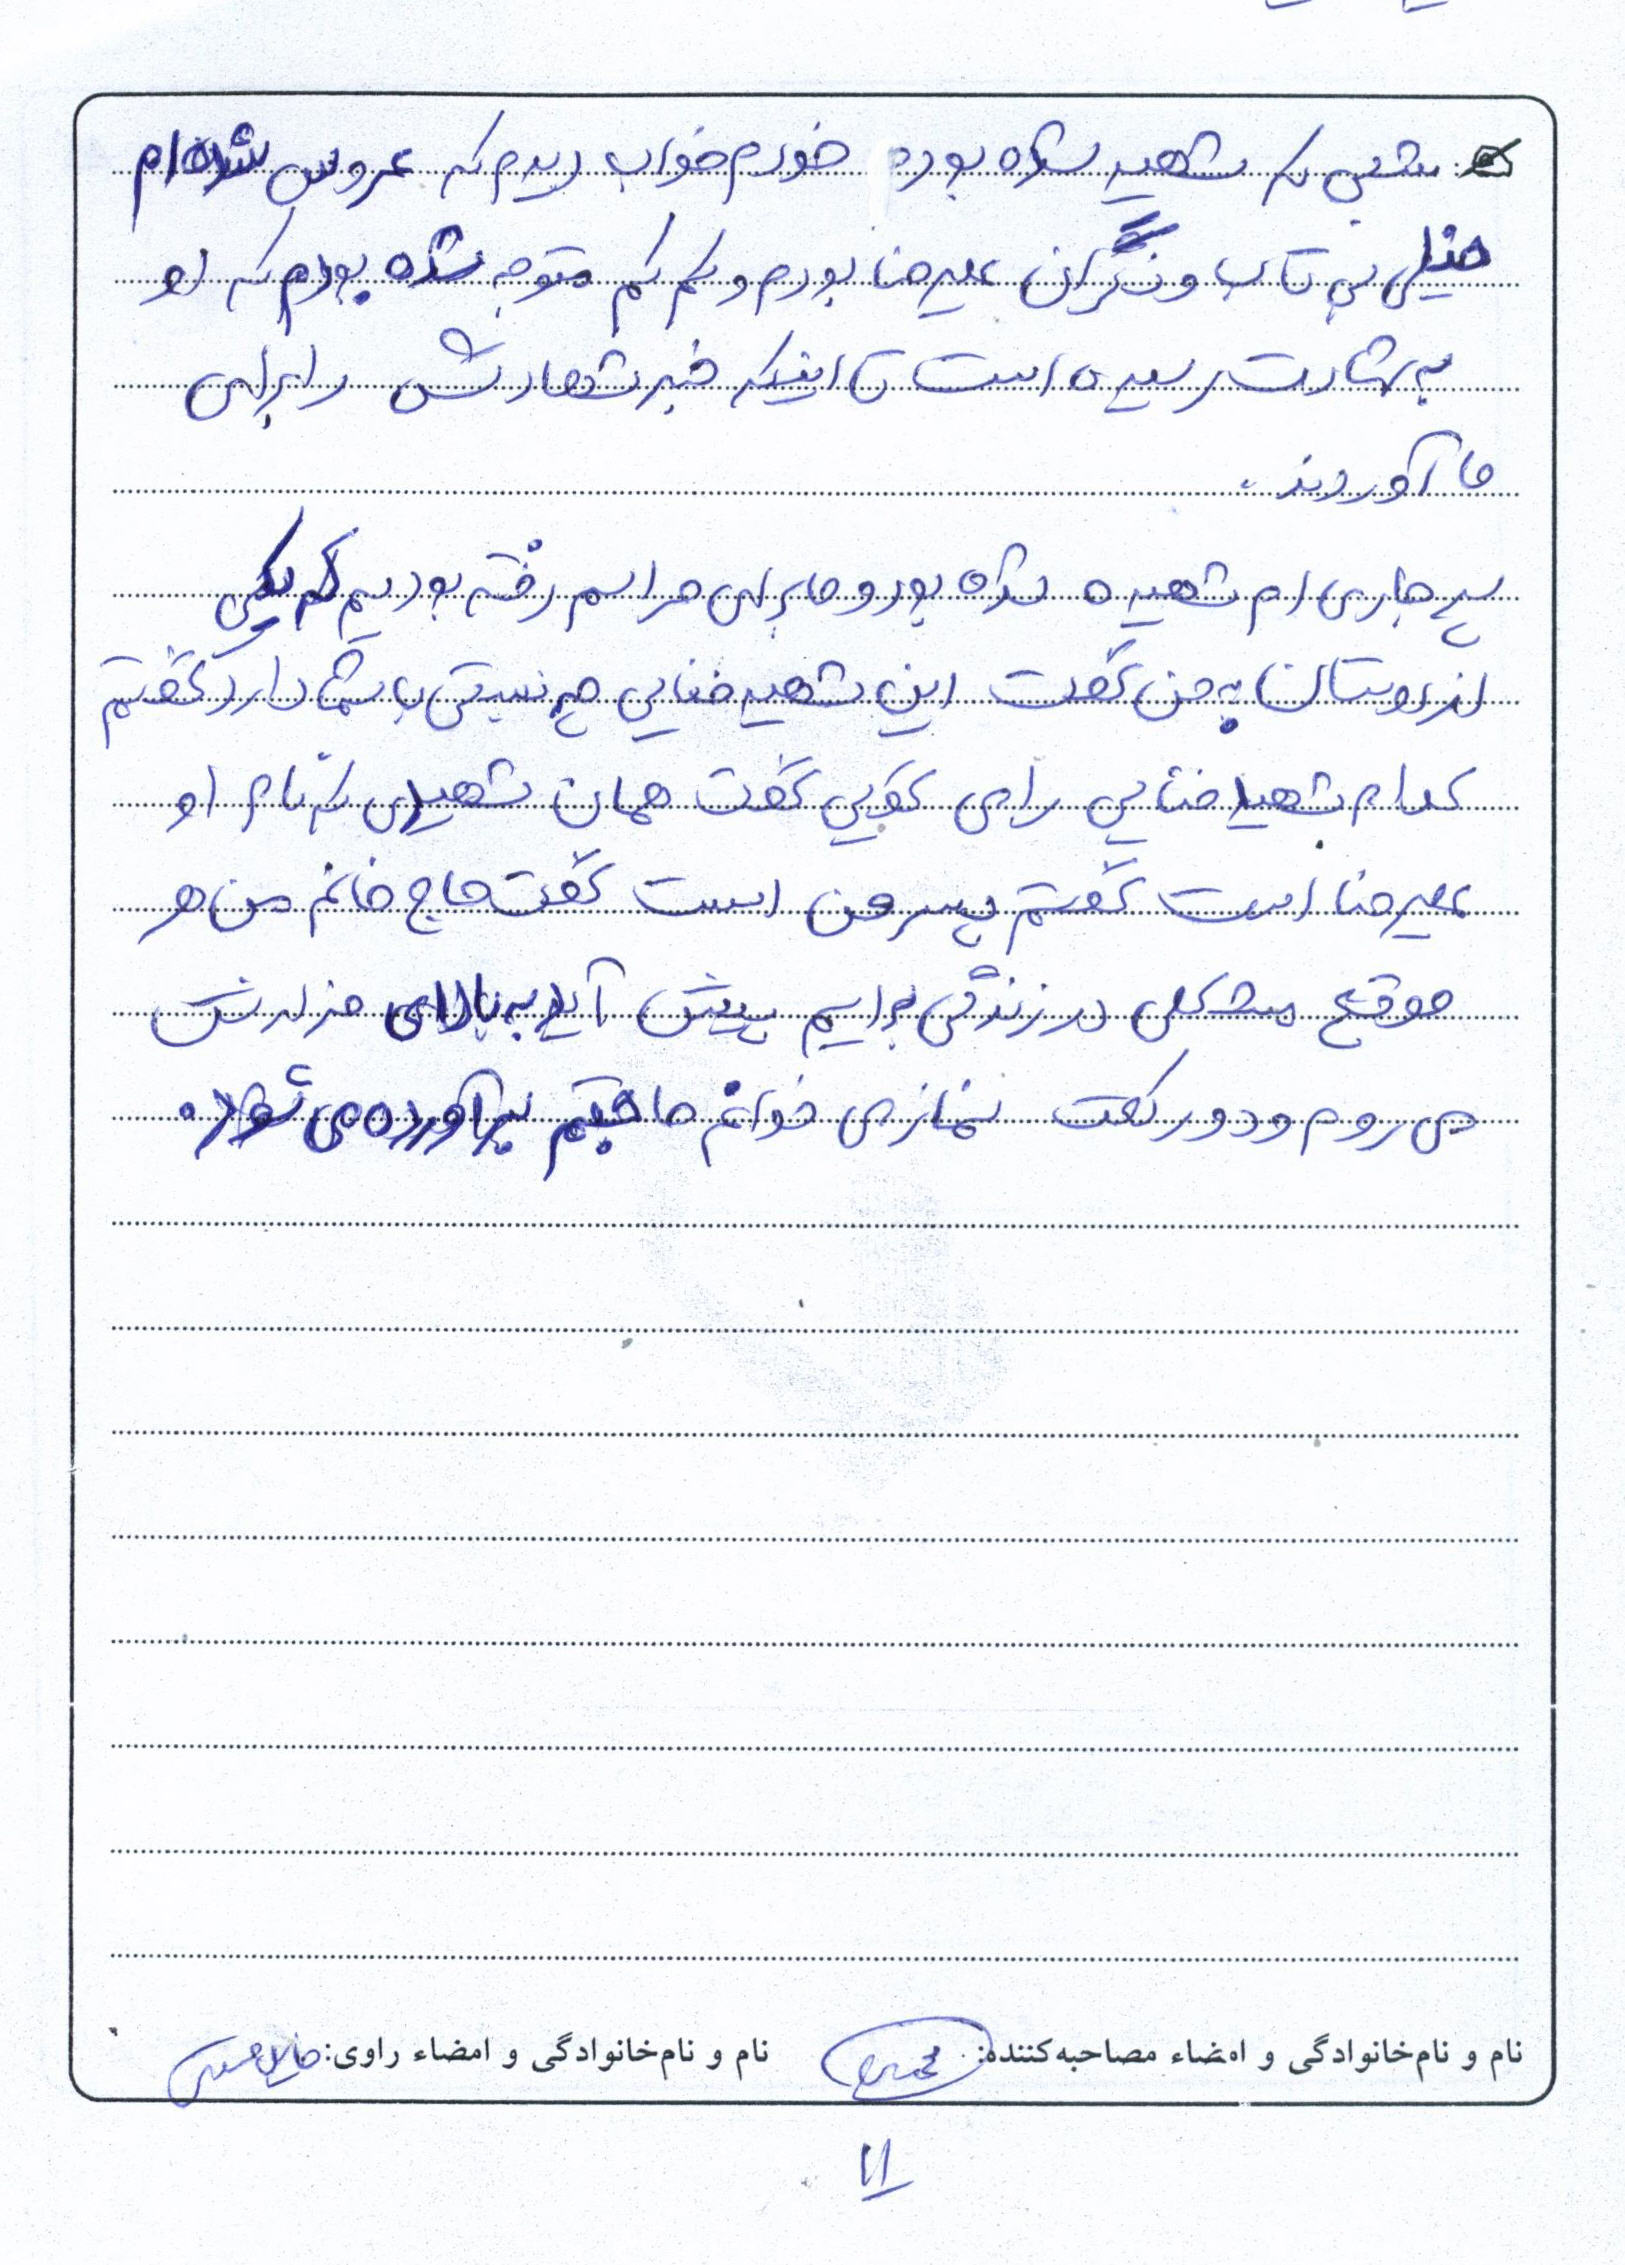 شبی که شهید شده بود خودم خواب دیدم که عروس شده ام
خیلی بی تاب و نگران علیرضا بودم و کم کم متوجه شده بودم که او
به شهادت رسیده است تا اینکه خبر شهادتش را برای
ما آوردند.
پسر جاری ام شهید شده بود و ما برای مراسم رفته بودیم که یکی
از دوستان به من گفت این شهید خنایی چه نسبتی با شما دارد گفتم
کدام شهید خنایی را می گویی گفت همان شهیدی که نام او
علیرضا است گفتم پسر من است گفت حاج خانم من هر
موقع مشکلی در زندگی برایم پیش آید به بالای مزارش
می روم و دو رکعت نماز می خوانم حاجتم برآورده می شود.
نام و نام‌خانوادگی و امضاء مصاحبه‌کننده: نام و نام‌خانوادگی و امضاء راوی: